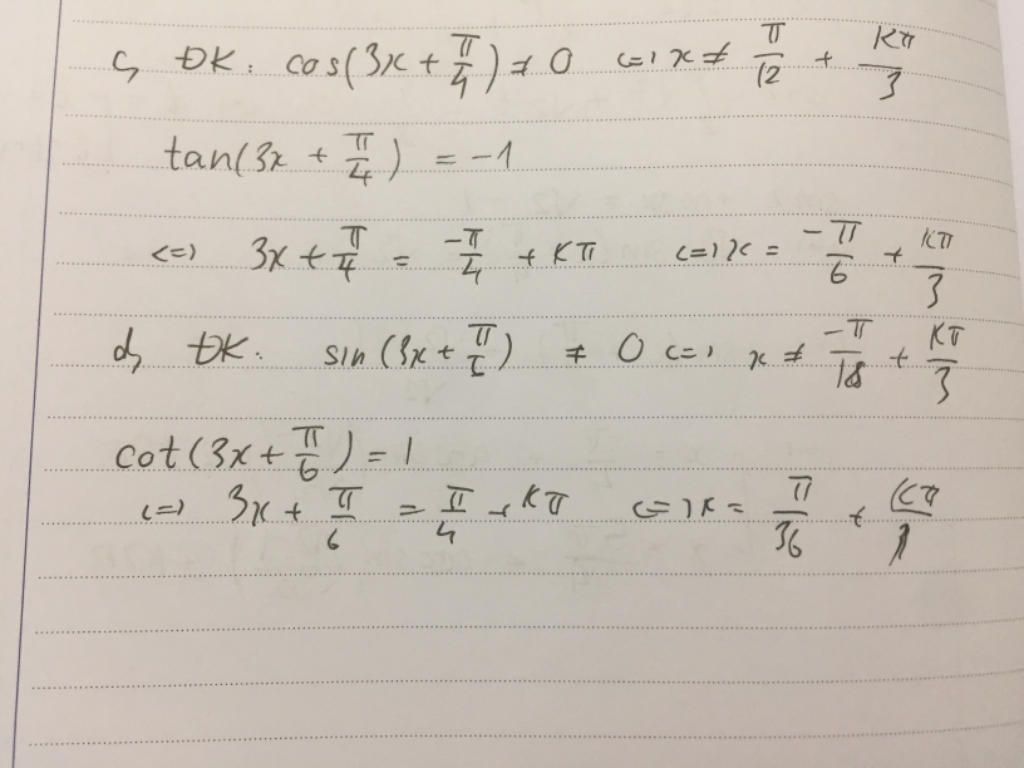 c, ĐK: cos(3x + π/4) ≠ 0 <=> x ≠ π/12 + kπ/3
tan(3x + π/4) = -1
<=> 3x + π/4 = -π/4 + kπ <=> x = -π/6 + kπ/3
d, ĐK: sin(3x + π/6) ≠ 0 <=> x ≠ -π/18 + kπ/3
cot(3x + π/6) = 1
<=> 3x + π/6 = π/4 + kπ <=> x = π/36 + kπ/3